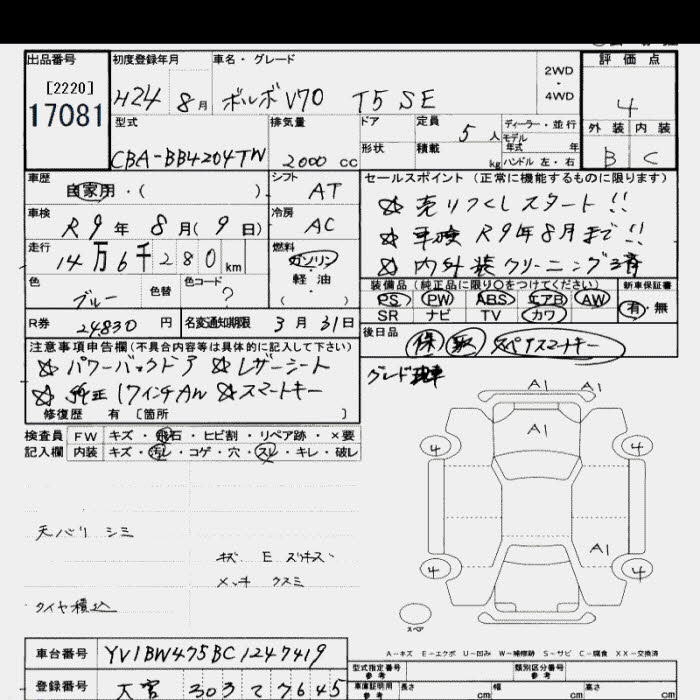 出品番号
[2220]
17081
初度登録年月
H24 8月
車名・グレード
ボルボ V70 T5 SE
2WD
・
4WD
評価点
4
外装 内装
B C
型式
CBA-BB4204TW
排気量
2000 cc
ドア
形状
定員
5人
積載
kg
ディーラー・並行
モデル
年式 年
ハンドル 左・右
車歴
自家用・( )
シフト
AT
車検
R9年 8月(9日)
冷房
AC
走行
14万6千280km
燃料
ガソリン
軽油
・
色
ブルー
色替
色コード
?
R券
24830円
名変通知期限
3月31日
セールスポイント(正常に機能するものに限ります)
☆ 売りつくしスタート!!
☆ 車検 R9年8月まで!!
☆ 内外装クリーニング済
装備品(純正品に限り○をつけてください)
新車保証書
PS PW ABS エアB AW
SR ナビ TV カワ
有・無
後日品
保 取 スペアスマートキー
注意事項申告欄(不具合内容等は具体的に記入して下さい)
☆ パワーバックドア ☆ レザーシート
☆ 純正17インチAW ☆ スマートキー
修復歴 有 [箇所 ]
検査員
記入欄
FW キズ・飛石・ヒビ割・リペア跡・×要
内装 キズ・汚レ・コゲ・穴・スレ・キレ・破レ
天バリ シミ
キズ E スリキズ
メッキ クスミ
タイヤ積込
A1 A1
A1
4 4
A1
4 4
スペア
A-キズ E-エクボ U-凹み W-補修跡 S-サビ C-腐食 XX-交換済
車台番号
YV1BW475BC1247419
登録番号
大宮 303 て 7645
型式指定番号
参考
類別区分番号
参考
車庫証明用
参考
長さ cm
幅 cm
高さ cm